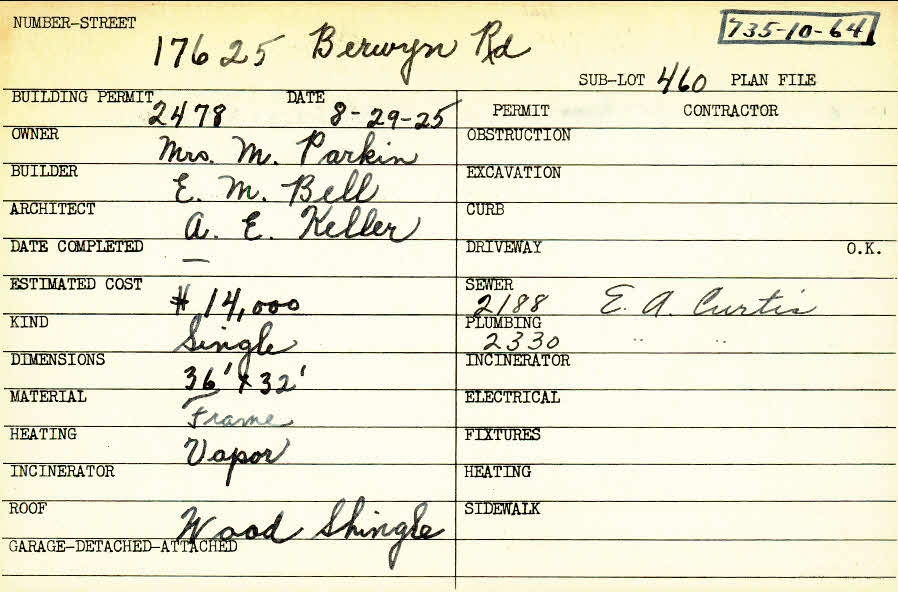 NUMBER-STREET
17625 Berwyn Rd
735-10-64
SUB-LOT 460 PLAN FILE
BUILDING PERMIT 2478 DATE 8-29-25
PERMIT CONTRACTOR
OWNER Mrs. M. Parkin
OBSTRUCTION
BUILDER E. M. Bell
EXCAVATION
ARCHITECT A. E. Keller
CURB
DATE COMPLETED —
DRIVEWAY O.K.
ESTIMATED COST $ 14,000
SEWER 2188 E. A. Curtis
KIND Single
PLUMBING 2330 " "
DIMENSIONS 36' x 32'
INCINERATOR
MATERIAL Frame
ELECTRICAL
HEATING Vapor
FIXTURES
INCINERATOR
HEATING
ROOF Wood Shingle
SIDEWALK
GARAGE-DETACHED-ATTACHED